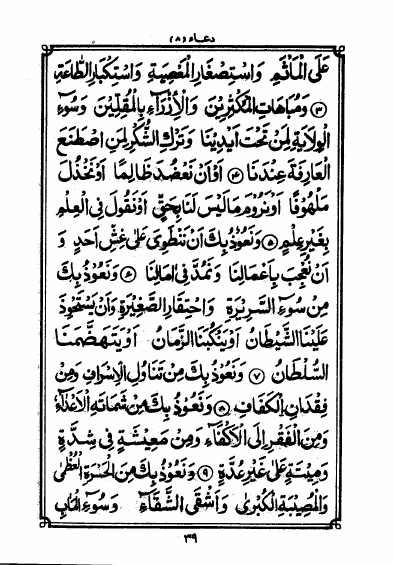 دعاء (۸)
عَلَى الْمَأْثَمِ وَاسْتِصْغَارِ الْمَعْصِيَةِ وَاسْتِكْبَارِ الطَّاعَةِ
۝۳ وَمُبَاهَاتِ الْمُكْثِرِيْنَ وَالْإِزْرَآءِ بِالْمُقِلِّيْنَ وَسُوْءِ
الْوِلَايَةِ لِمَنْ تَحْتَ اَيْدِيْنَا وَتَرْكِ الشُّكْرِ لِمَنِ اصْطَنَعَ
الْعَارِفَةَ عِنْدَنَا ۝۴ اَوْ اَنْ نَعْضُدَ ظَالِمًا اَوْ نَخْذُلَ
مَلْهُوْفًا اَوْ نَرُوْمَ مَا لَيْسَ لَنَا بِحَقٍّ اَوْ نَقُوْلَ فِى الْعِلْمِ
بِغَيْرِ عِلْمٍ ۝۵ وَنَعُوْذُ بِكَ اَنْ نَنْطَوِىَ عَلٰى غِشِّ اَحَدٍ وَ
اَنْ نُعْجَبَ بِاَعْمَالِنَا وَنَمُدَّ فِىْ اٰمَالِنَا ۝ وَنَعُوْذُ بِكَ
مِنْ سُوْءِ السَّرِيْرَةِ وَاحْتِقَارِ الصَّغِيْرَةِ وَاَنْ يَسْتَحْوِذَ
عَلَيْنَا الشَّيْطَانُ اَوْ يَنْكُبَنَا الزَّمَانُ اَوْ يَتَهَضَّمَنَا
السُّلْطَانُ ۝۷ وَنَعُوْذُ بِكَ مِنْ تَنَاوُلِ الْاِسْرَافِ وَمِنْ
فِقْدَانِ الْكَفَافِ ۝۸ وَنَعُوْذُ بِكَ مِنْ شَمَاتَةِ الْاَعْدَآءِ
وَمِنَ الْفَقْرِ اِلَى الْاَكْفَآءِ وَمِنْ مَعِيْشَةٍ فِىْ شِدَّةٍ
وَمِيْتَةٍ عَلٰى غَيْرِ عُدَّةٍ ۝۹ وَنَعُوْذُ بِكَ مِنَ الْحَسْرَةِ الْعُظْمٰى
وَالْمُصِيْبَةِ الْكُبْرٰى وَاَشْقَى الشَّقَآءِ وَسُوْءِ الْمَاٰبِ
۳۹